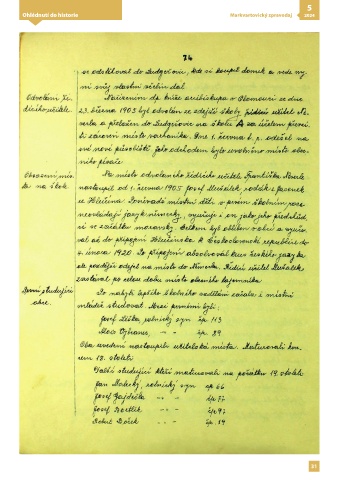 Ohlédnutí do historie
Markvartovický zpravodaj
5
2024
74
se odstěhoval do Ludgeřovic, kde si koupil domek a vede ny-
ní svůj vlastní včelín dál
Odvolání ří-
dícího učitele.
Nařízením dp. knížete arcibiskupa v Olomouci ze dne
23. března 1905 byl odvolán ze zdejší školy řídící učitel
a přeložen do Ludgeřovic na školu A za účelem převze-
tí zároveň místa varhaníka. Dne 1. června t. r. odešel na
své nové působiště. Jeho odchodem bylo uvolněno místo obec-
ního písaře.
Obsazení mís-
ta na škole
Na místo odvolaného řídícího učitele Františka
nastoupil od 1. června 1905 Josef Mušálek, rodák z
ze Hlučína. Poněvadž místní děti v prvém školním roce
neovládají jazyk německý, vyučuje i on jako jeho předchůd-
ci ze začátku moravsky. Celkem byl oblíben v obci a vyučo-
val až do připojení Hlučínska k Československé republice do
4. února 1920. Po připojení absolvoval kurs českého jazyka
ale později odešel na místo do Německa. Řídící učitel Mušálek
zastával po celou dobu místo obecního tajemníka
První studující z
obce.
Po nabytí lepšího školního vzdělání začala i místní
mládež studovat. Mezi prvními byli:
Josef Liška, rolnický syn čp. 113
Alois - " - čp. 39
Oba uvedení nastoupili učitelská místa. Maturovali kon-
cem 19. století
Další studující kteří maturovali na počátku 19. století
Jan rolnický syn čp 66
Josef Gajdečka - " - čp 77
Josef - " - čp. 97
Robert Boček - " - čp. 14
31